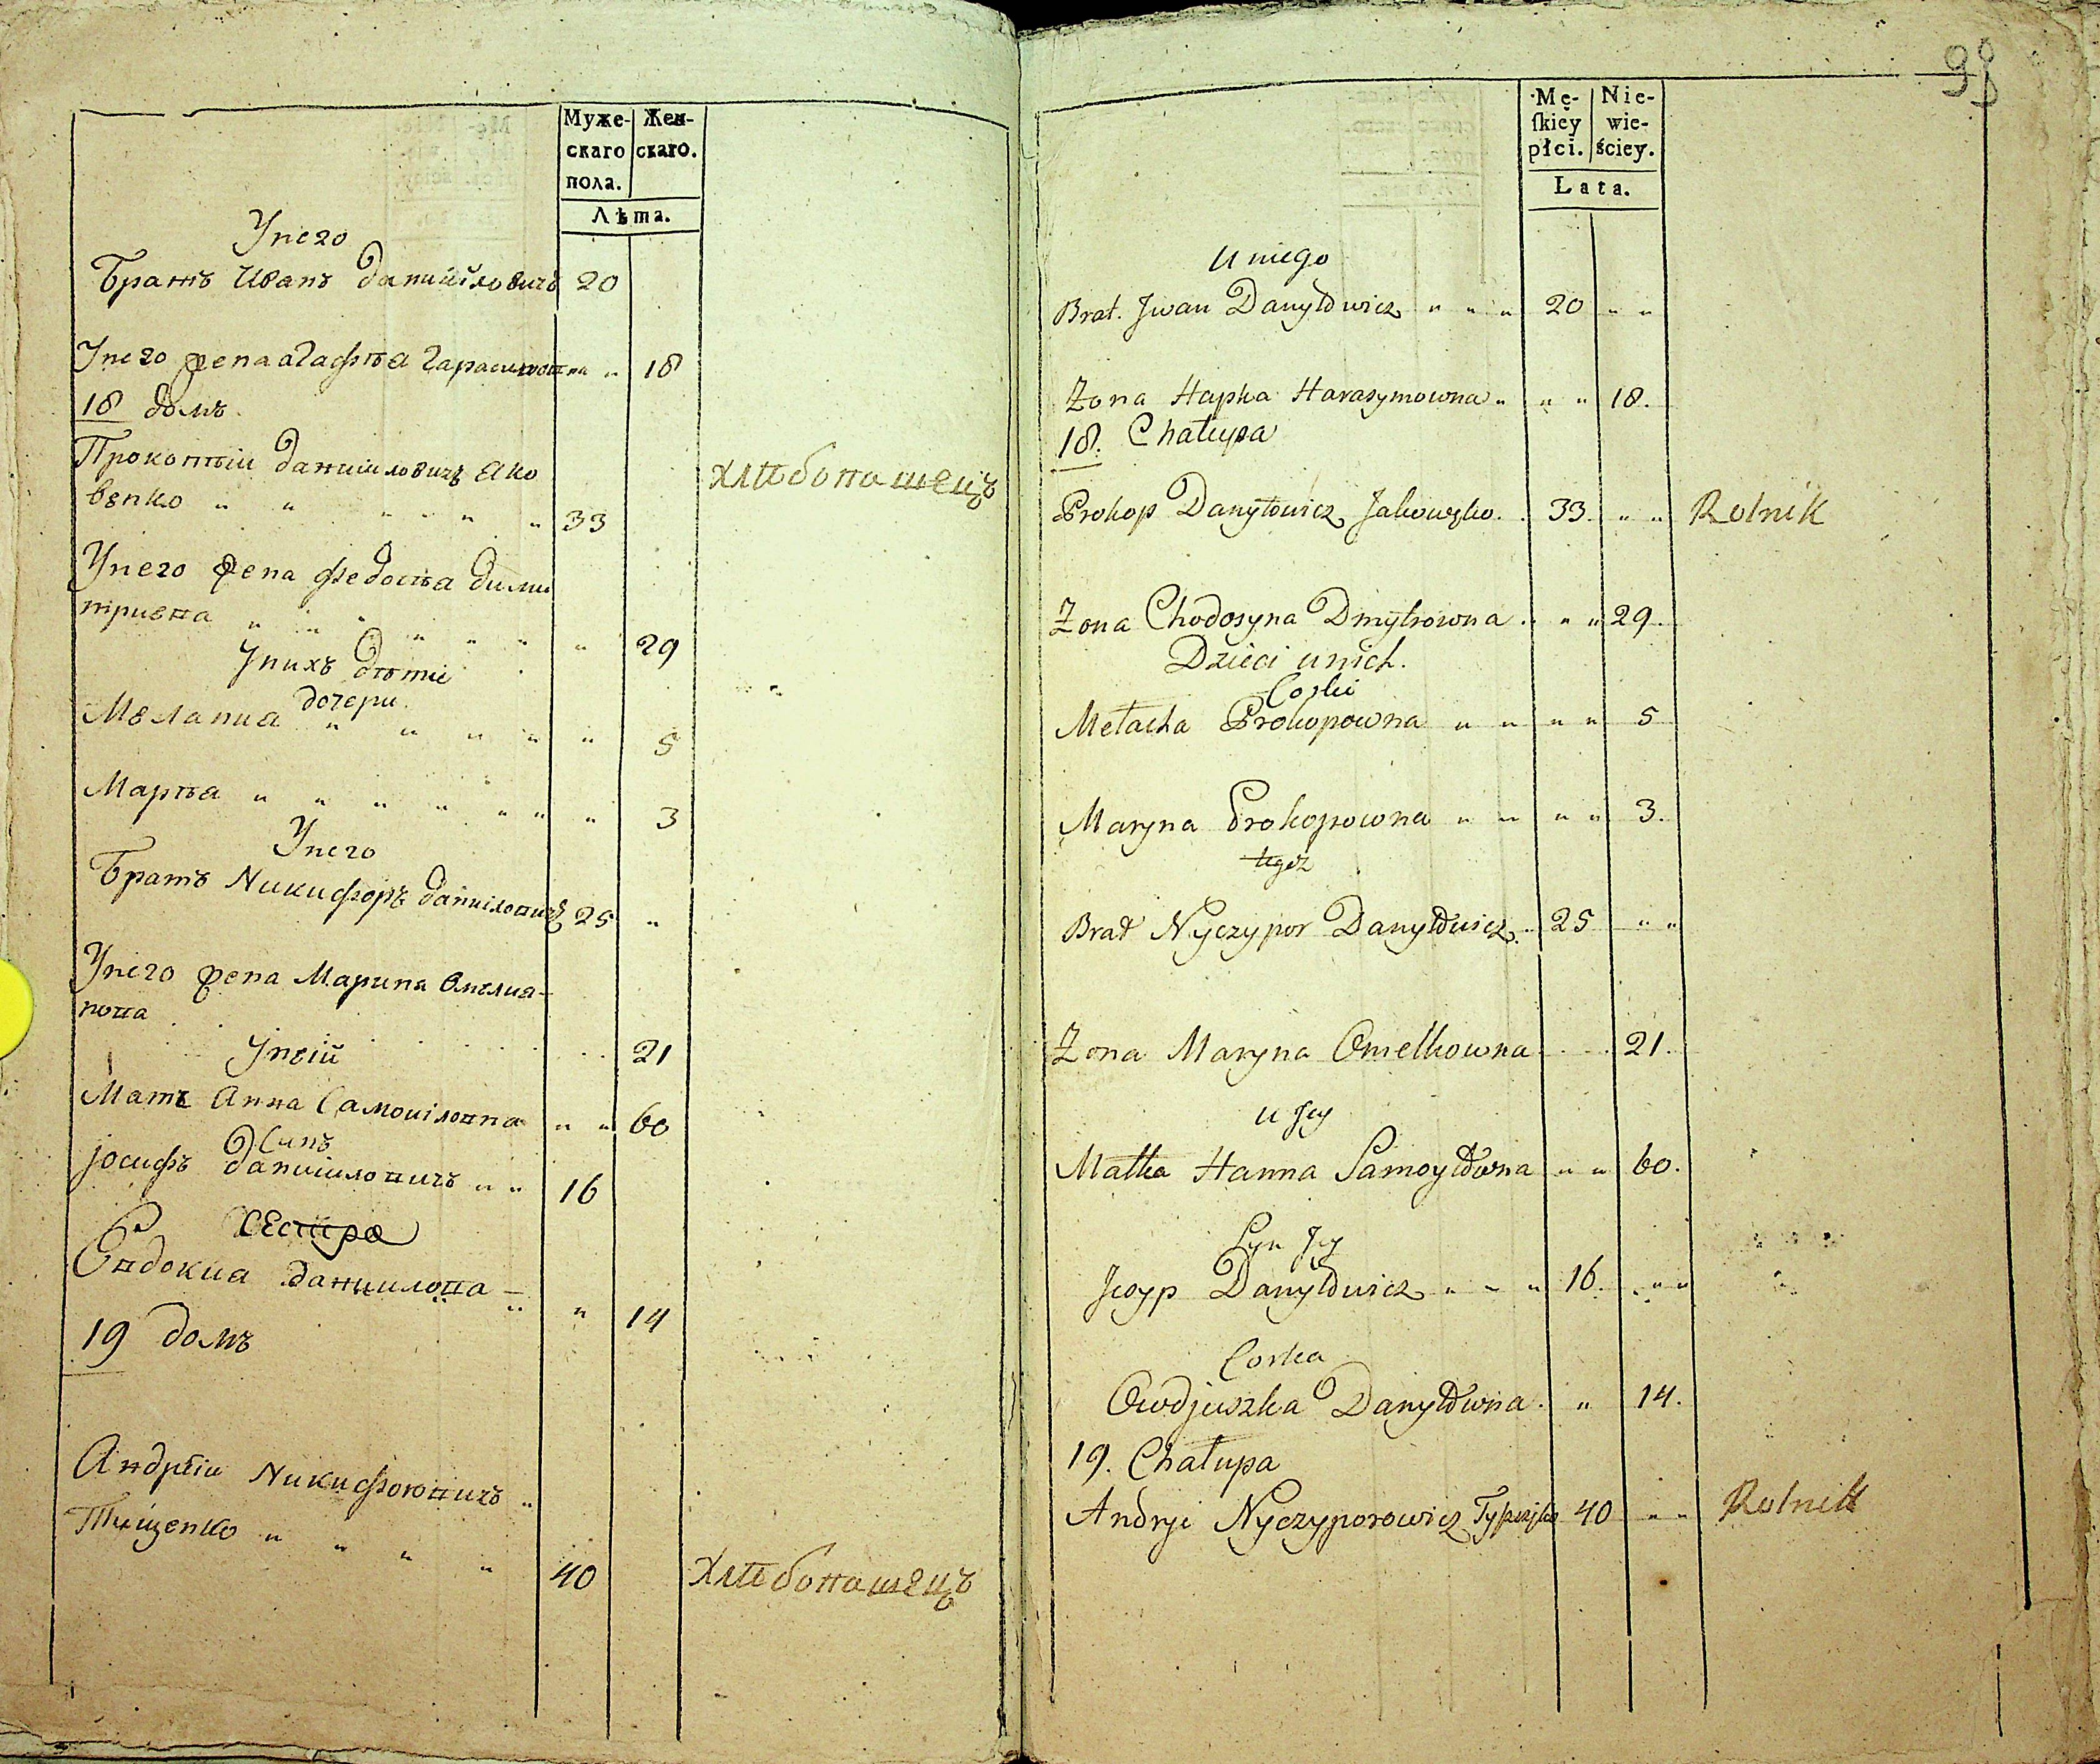 Муже-
скаго
пола.
Жен-
скаго.
Лѣта.
Унего
Братъ Иванъ Данийловичъ 20
Унего жена Агафиа Гарасимовна " 18
18 домъ
Прокопій Даниіловичъ Яко
венко " " " " " " 33 хлѣбопашецъ
Унего жена Федосиа Дими
триевна " " " " " " " 29
Унихъ дѣтіе
дочери
Мелания " " " " " 5
Марѣа " " " " " " " 3
Унего
Братъ Никифоръ Даниіловичъ 25 "
Унего жена Марина Омелиа-
нова
Унеій 21
Мать Анна Самоиловна " " 60
Синъ
Іосифъ Данииловичъ " " 16
сестра
Евдокиа Даниилова " " 14
19 домъ
Андрѣій Никифоровичъ "
Тищенко " " " " 40 хлѣбопашецъ
98
Mę-
ſkiey
płci.
Nie-
wie-
ściey.
Lata.
U niego
Brat. Jwan Danyłowicz " " " 20 " "
Żona Hapka Harasymowna " " " 18.
18. Chałupa
Prokop Danyłowicz Jakowęko. . 33. " " Rolnik
Żona Chodosyna Dmytrowna . " " 29.
Dzieci u nich.
Corki
Mełacha Prokopowna " " " " 5
Maryna Prokopowna " " " " 3.
tegoż
Brat Nyczypor Danyłowicz. " 25 " "
Żona Maryna Omelkowna 21.
u Jey
Matka Hanna Samoyłowna " " 60.
Syn Jey
Josyp Danyłowicz " " " 16. " "
Corka
Owdjuszka Danyłowna . " 14.
19. Chałupa
Andryi Nyczyporowicz 40 " " Rolnik